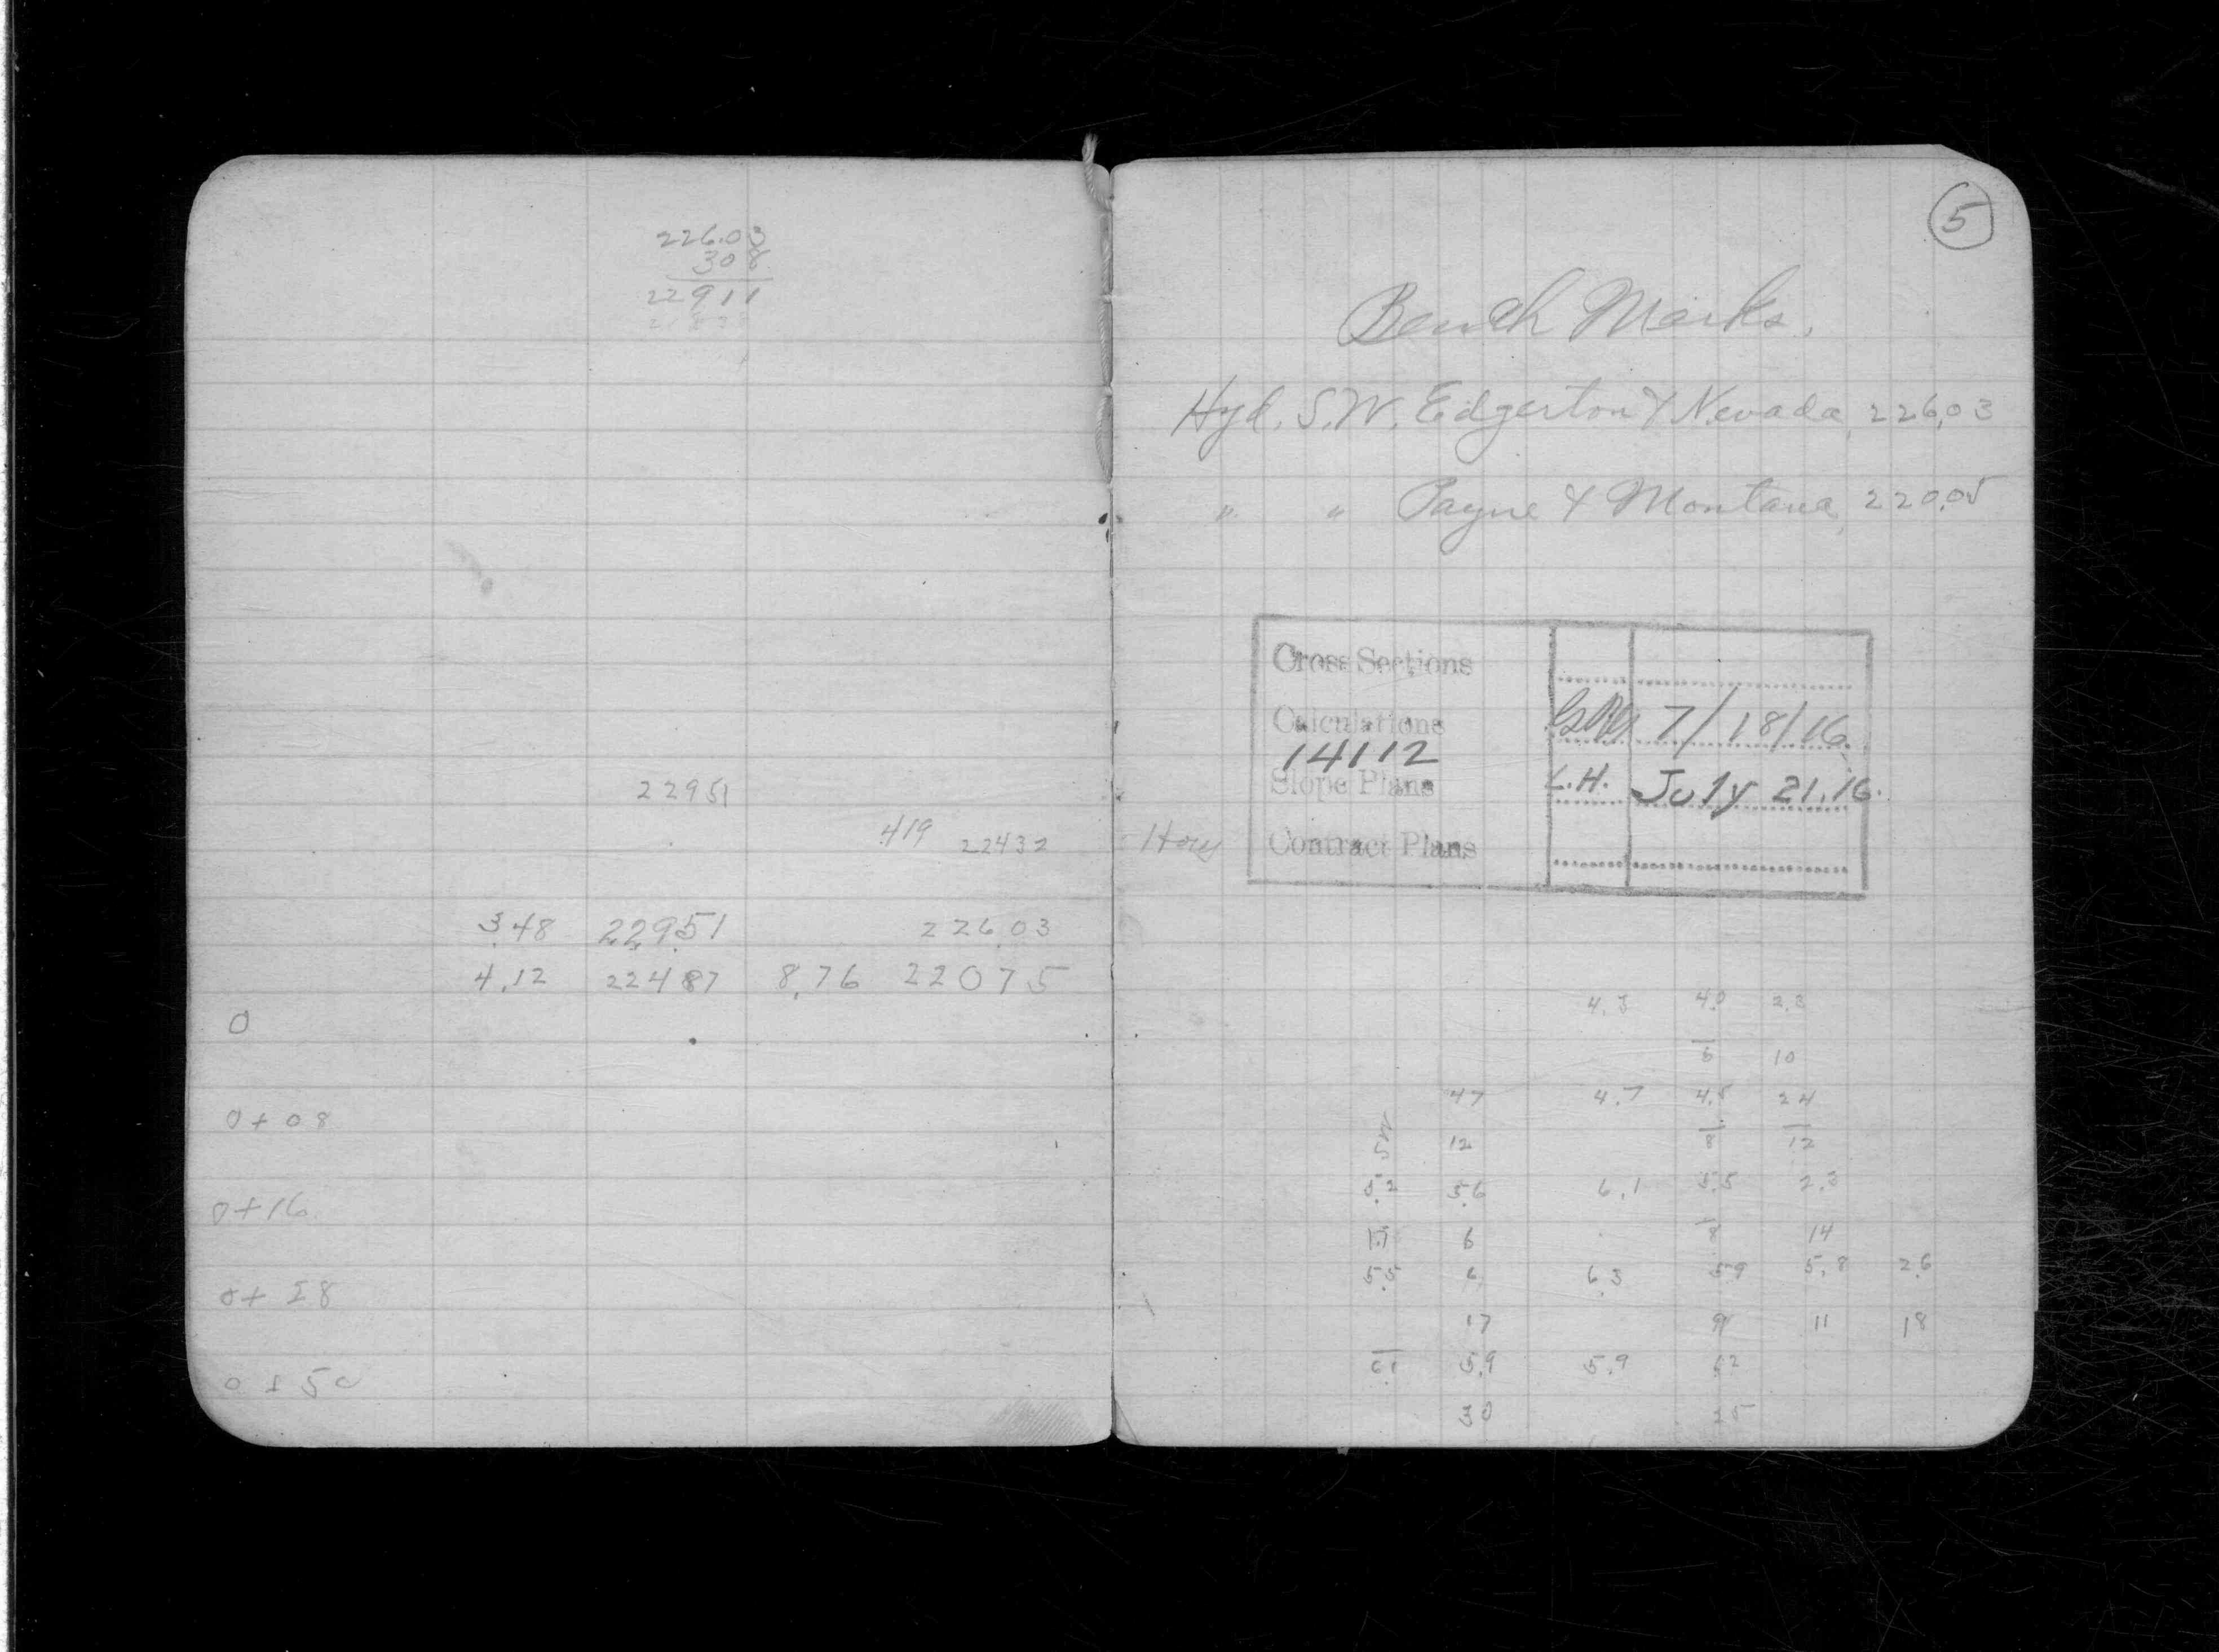 226.03
308
22911
22951
419 22432
3.48 229.51 226.03
4.12 22487 8.76 22075
0
0+08
0+16
0+50
5
Bench Marks.
Hyd. S.W. Edgerton & Nevada, 226.03
" " Payne & Montana, 220.05
Cross Sections
Calculations 7/18/16
14112
Slope Plans L.H. July 21.16.
Contract Plans
4.3 4.0 2.3
8 10
47 4.7 4.5 24
12 8 12
5.2 5.6 6.1 5.5 2.3
6 8 14
5.5 6 6.3 5.9 5.8 2.6
17 9 11 18
6.1 5.9 5.9 6.2
30 25